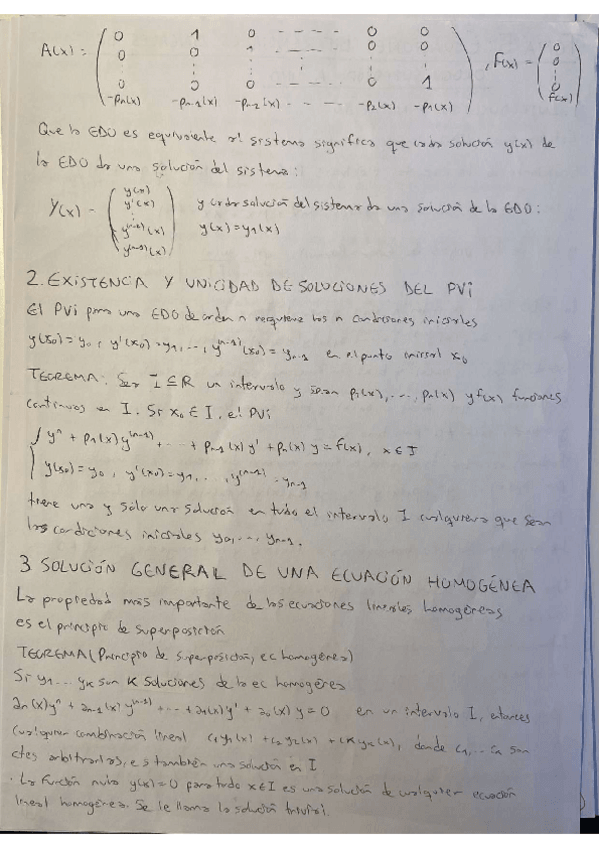 A(x) = ( 0 1 0 ---- --- 0 0
0 0 1 ---- --- 0 0
0 0 0 ---- --- 0 1
-pn(x) -pn-1(x) -pn-2(x) - - - -p2(x) -p1(x) ) , F(x) = ( 0 0 0 f(x) )
Que la EDO es equivalente al sistema significa que cada solución y(x) de
la EDO da una solución del sistema:
Y(x) = ( y(x) y'(x) y^(n-2)(x) y^(n-1)(x) ) y cada solución del sistema da una solución de la EDO:
y(x) = y1(x)
2. EXISTENCIA Y UNICIDAD DE SOLUCIONES DEL PVI
El PVI para una EDO de orden n requiere las n condiciones iniciales
y(x0) = y0, y'(x0) = y1, ..., y^(n-1)(x0) = yn-1 en el punto inicial x0
TEOREMA: Sea I ⊆ R un intervalo y sean p1(x), ..., pn(x) y f(x) funciones
continuas en I. Si x0 ∈ I, el PVI
{ y^n + p1(x) y^(n-1) + ... + pn-1(x) y' + pn(x) y = f(x), x ∈ I
y(x0) = y0, y'(x0) = y1, ..., y^(n-1) = yn-1
tiene una y solo una solución en todo el intervalo I cualquiera que sean
las condiciones iniciales y0, ..., yn-1.
3 SOLUCIÓN GENERAL DE UNA ECUACIÓN HOMOGÉNEA
La propiedad más importante de las ecuaciones lineales homogéneas
es el principio de superposición
TEOREMA (Principio de superposición, ec homogénea)
Si y1 ... yk son K soluciones de la ec homogénea
an(x) y^n + an-1(x) y^(n-1) + ... + a1(x) y' + a0(x) y = 0 en un intervalo I, entonces
cualquier combinación lineal c1 y1(x) + c2 y2(x) + ck yk(x), donde c1, ... cn son
ctes arbitrarias, es también una solución en I
· La función nula y(x) = 0 para todo x ∈ I es una solución de cualquier ecuación
lineal homogénea. Se le llama la solución trivial.